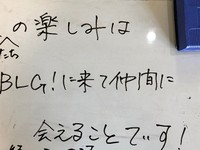 の楽しみは
たち
BLG!に来て仲間に
会えることでぃす!